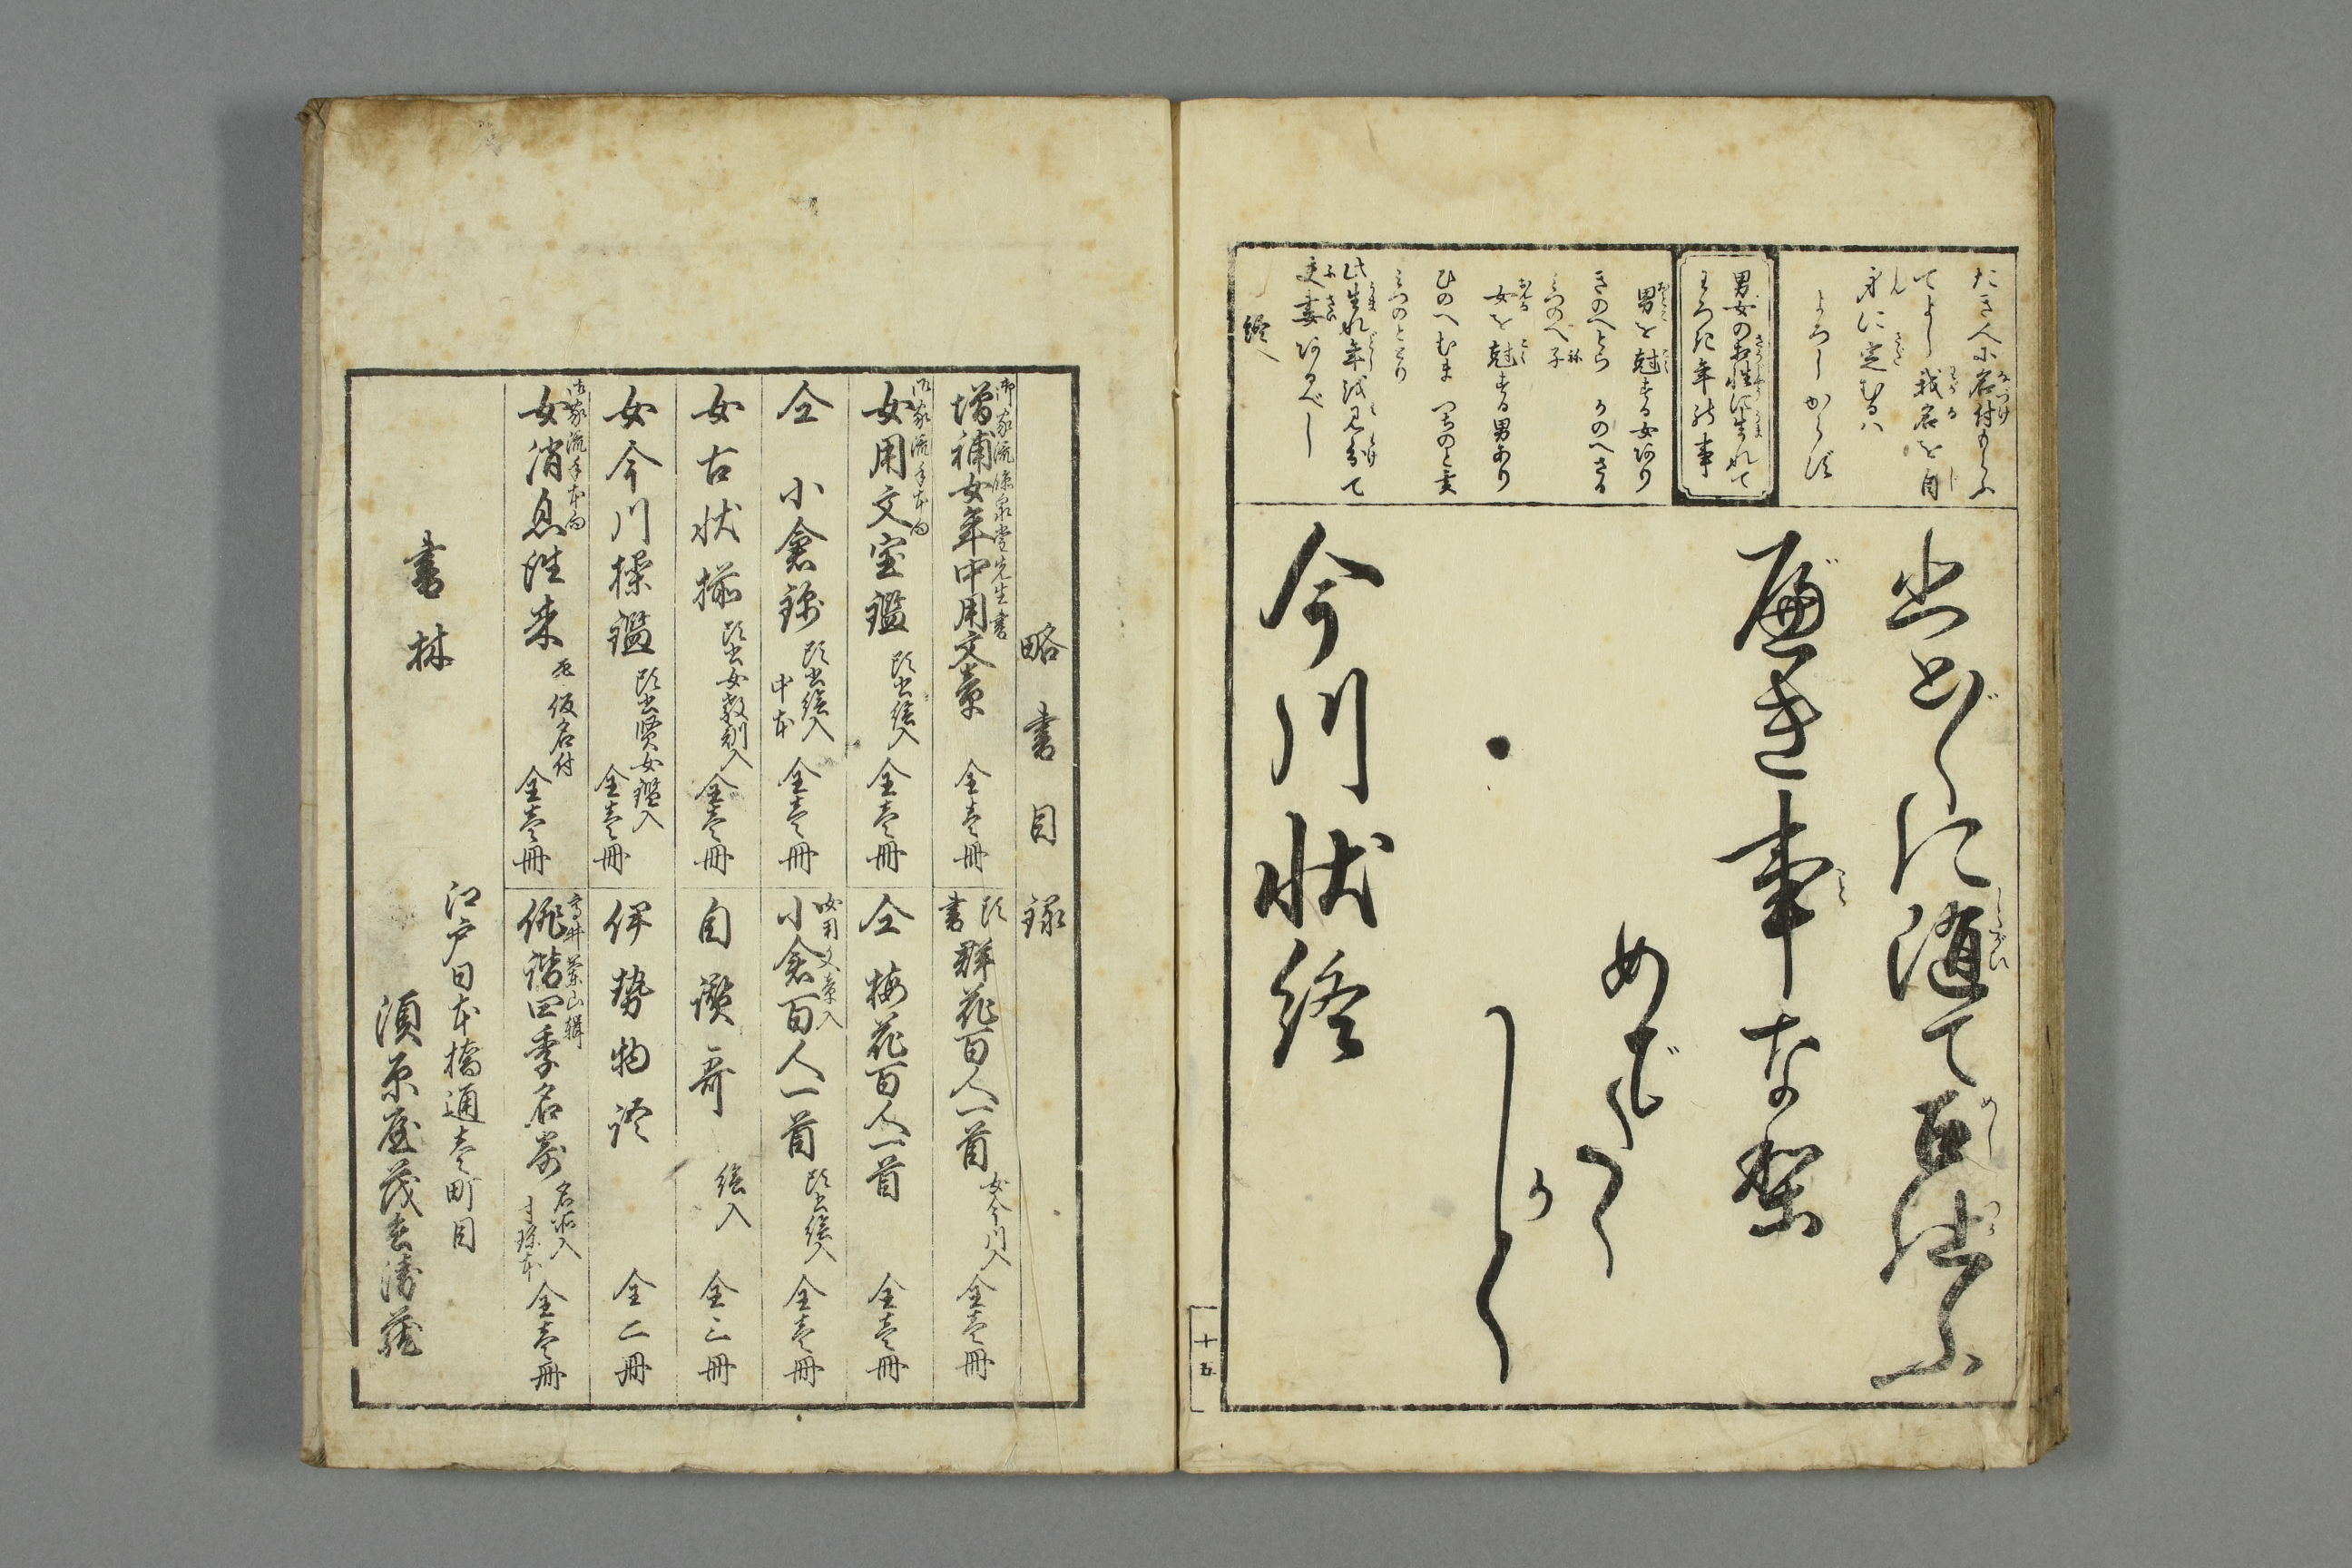 たき人に名付もらふ
てよし我名を自
身に定むるハ
よろしからず
男女の相性に生れて
わろき年の事
男を尅する女あり
きのへとら かのへさる
みづのへ子
女を尅する男あり
ひのへむま つちのと亥
みつのととり
此生れ年を
夫妻
終
ほどほどに随て召仕ふ
べき事な梨
めでたく
かしく
今川状終
十五
略書目録
御家流 泉堂先生書
増補女年中用文章 全壱冊
御家流手本向
女用文宝鑑 頭書絵入 全壱冊
仝 小倉錦 頭書絵入 中本 全壱冊
女古状揃 頭書女教訓入 全壱冊
女今川操鑑 頭書賢女鑑入 全壱冊
御家流手本向
女消息往来 仮名付 全壱冊
頭書 群花百人一首 女今川入 全壱冊
仝 梅花百人一首 全壱冊
女用文章入
小倉百人一首 頭書絵入 全壱冊
自讃哥 絵入 全三冊
伊勢物語 全二冊
高井蘭山輯
俳諧四季名寄 名所入 全壱冊
書林
江戸日本橋通壱町目
須原屋茂兵衛蔵